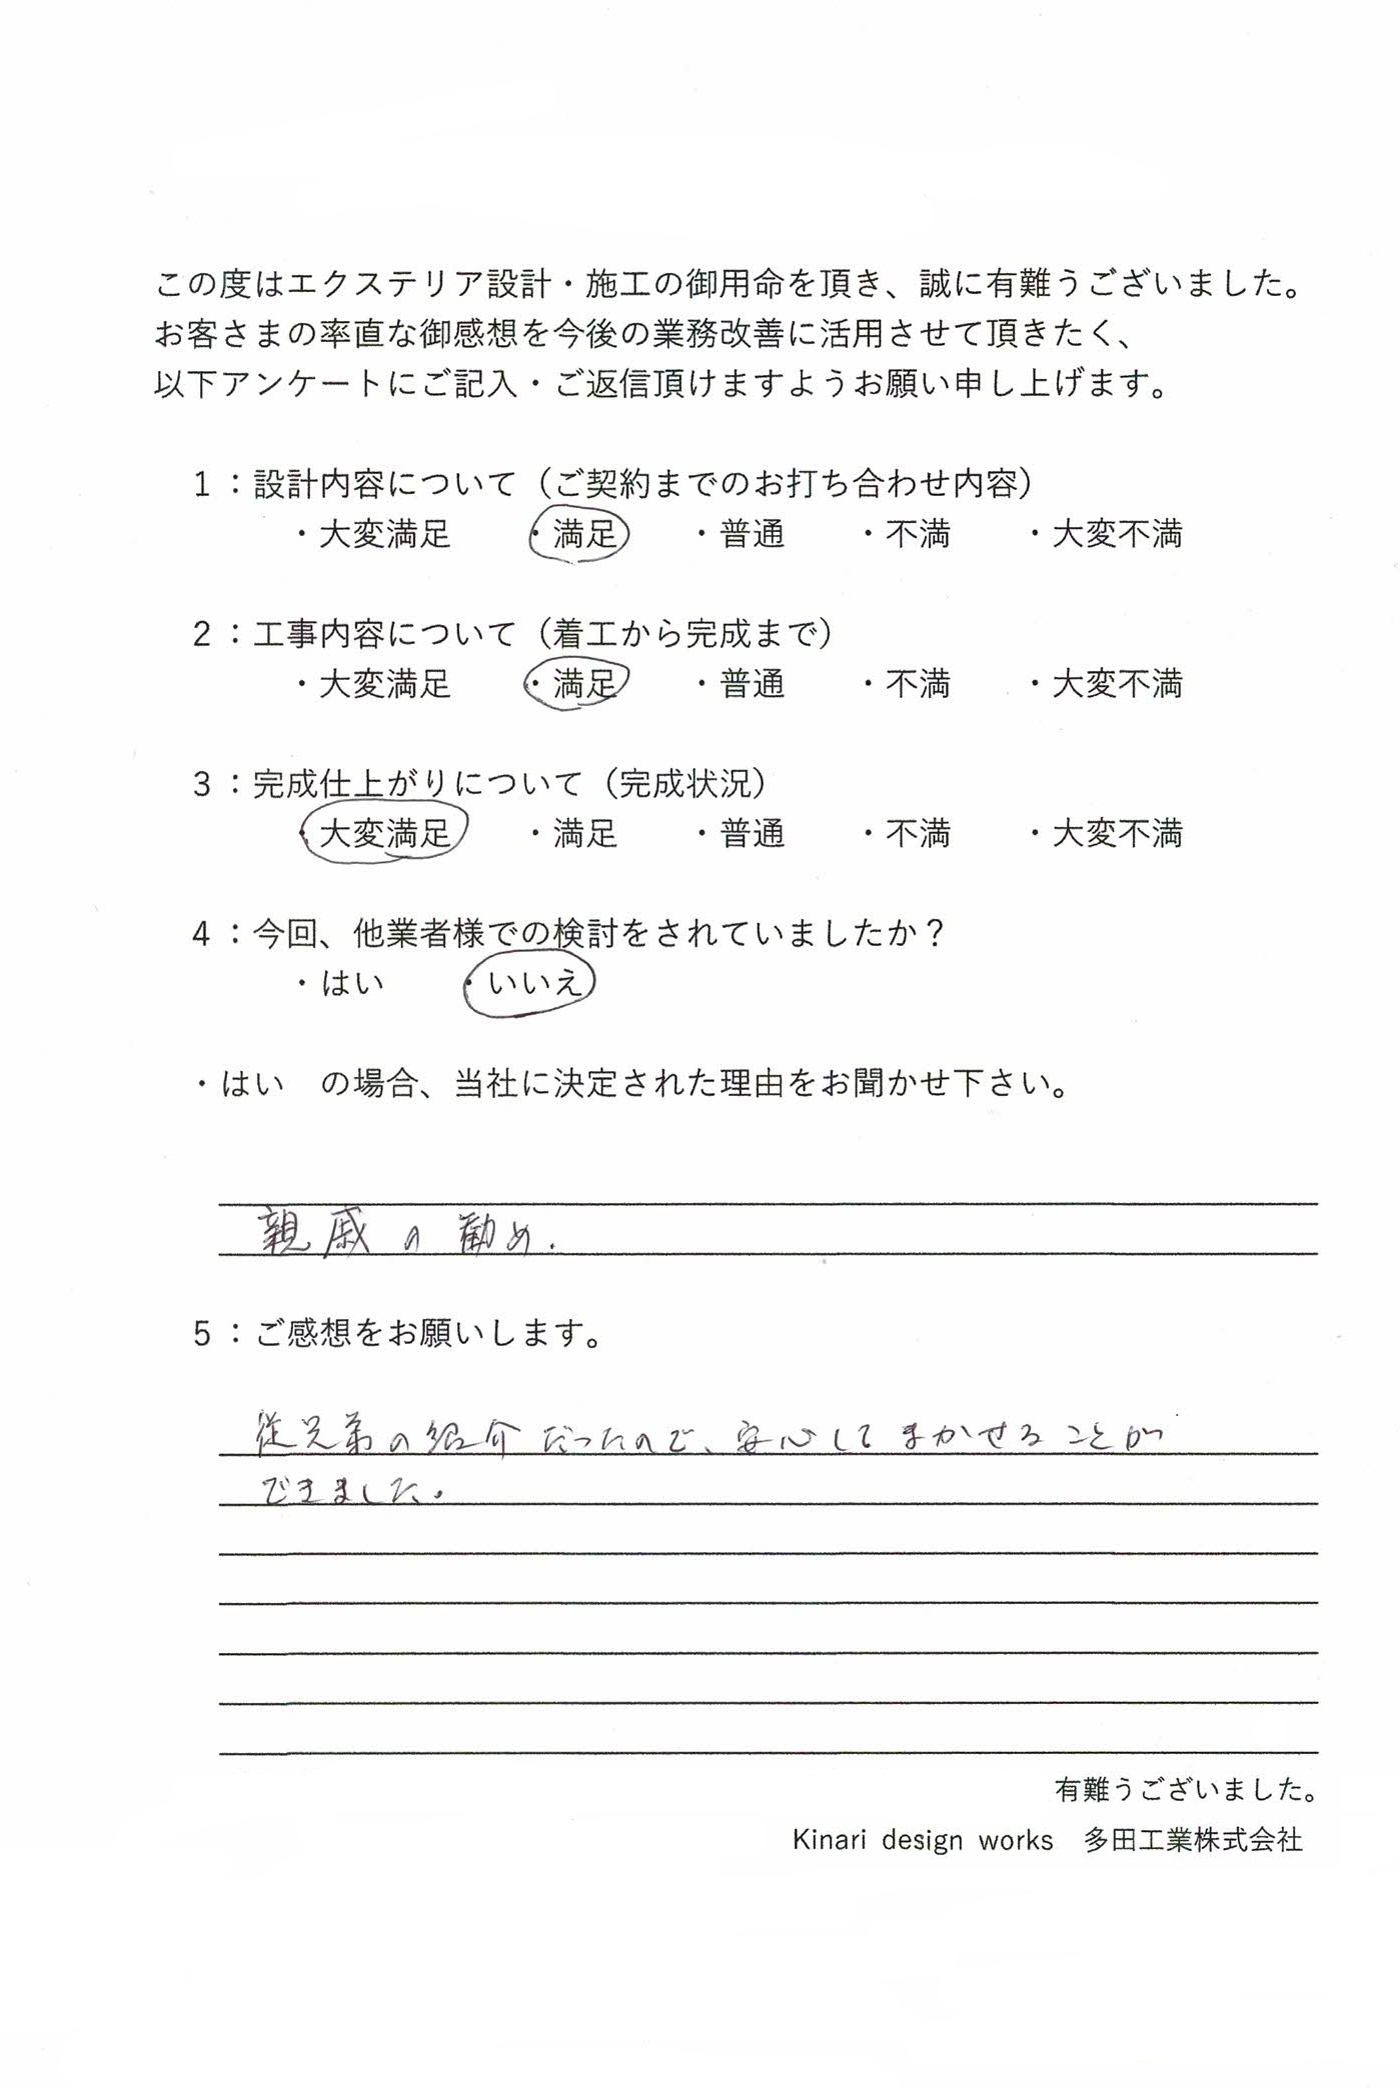 この度はエクステリア設計・施工の御用命を頂き、誠に有難うございました。
お客さまの率直な御感想を今後の業務改善に活用させて頂きたく、
以下アンケートにご記入・ご返信頂けますようお願い申し上げます。
1：設計内容について（ご契約までのお打ち合わせ内容）
・大変満足　・満足　・普通　・不満　・大変不満
2：工事内容について（着工から完成まで）
・大変満足　・満足　・普通　・不満　・大変不満
3：完成仕上がりについて（完成状況）
・大変満足　・満足　・普通　・不満　・大変不満
4：今回、他業者様での検討をされていましたか？
・はい　・いいえ
・はい　の場合、当社に決定された理由をお聞かせ下さい。
親戚の勧め.
5：ご感想をお願いします。
従兄弟の紹介だったので、安心してまかせることが
できました。
有難うございました。
Kinari design works　多田工業株式会社